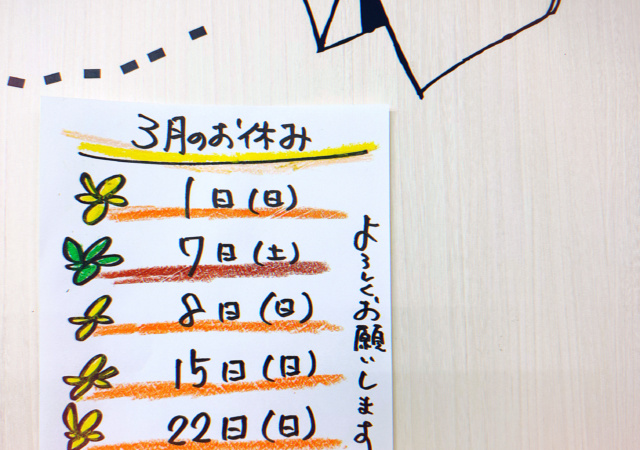 3月のお休み
1日(日)
7日(土)
8日(日)
15日(日)
22日(日)
よろしくお願いします